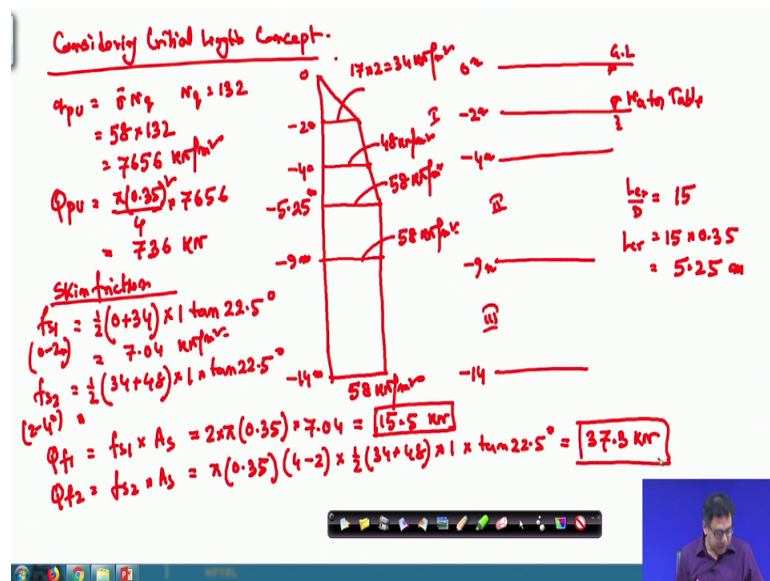 Considering Critical Length Concept.
qpu = σ̄ Nq  Nq = 132
= 58 × 132
= 7656 kN/m²
Qpu = π(0.35)²/4 × 7656
= 736 kN
Skin friction
fs1 = ½(0+34) × 1 tan 22.5°
(0-2m) = 7.04 kN/m²
fs2 = ½(34+48) × 1 × tan 22.5°
(2-4m) =
Qf1 = fs1 × As = 2×π(0.35) × 7.04 = 15.5 kN
Qf2 = fs2 × As = π(0.35)(4-2) × ½(34+48) × 1 × tan 22.5° = 37.3 kN
0
17×2=34 kN/m²
-2m
48 kN/m²
-4m
58 kN/m²
-5.25m
58 kN/m²
-9m
-14m
58 kN/m²
0m
G.L
I
-2m
Water Table
-4m
II
-9m
III
-14
Lcr/D = 15
Lcr = 15 × 0.35
= 5.25 m